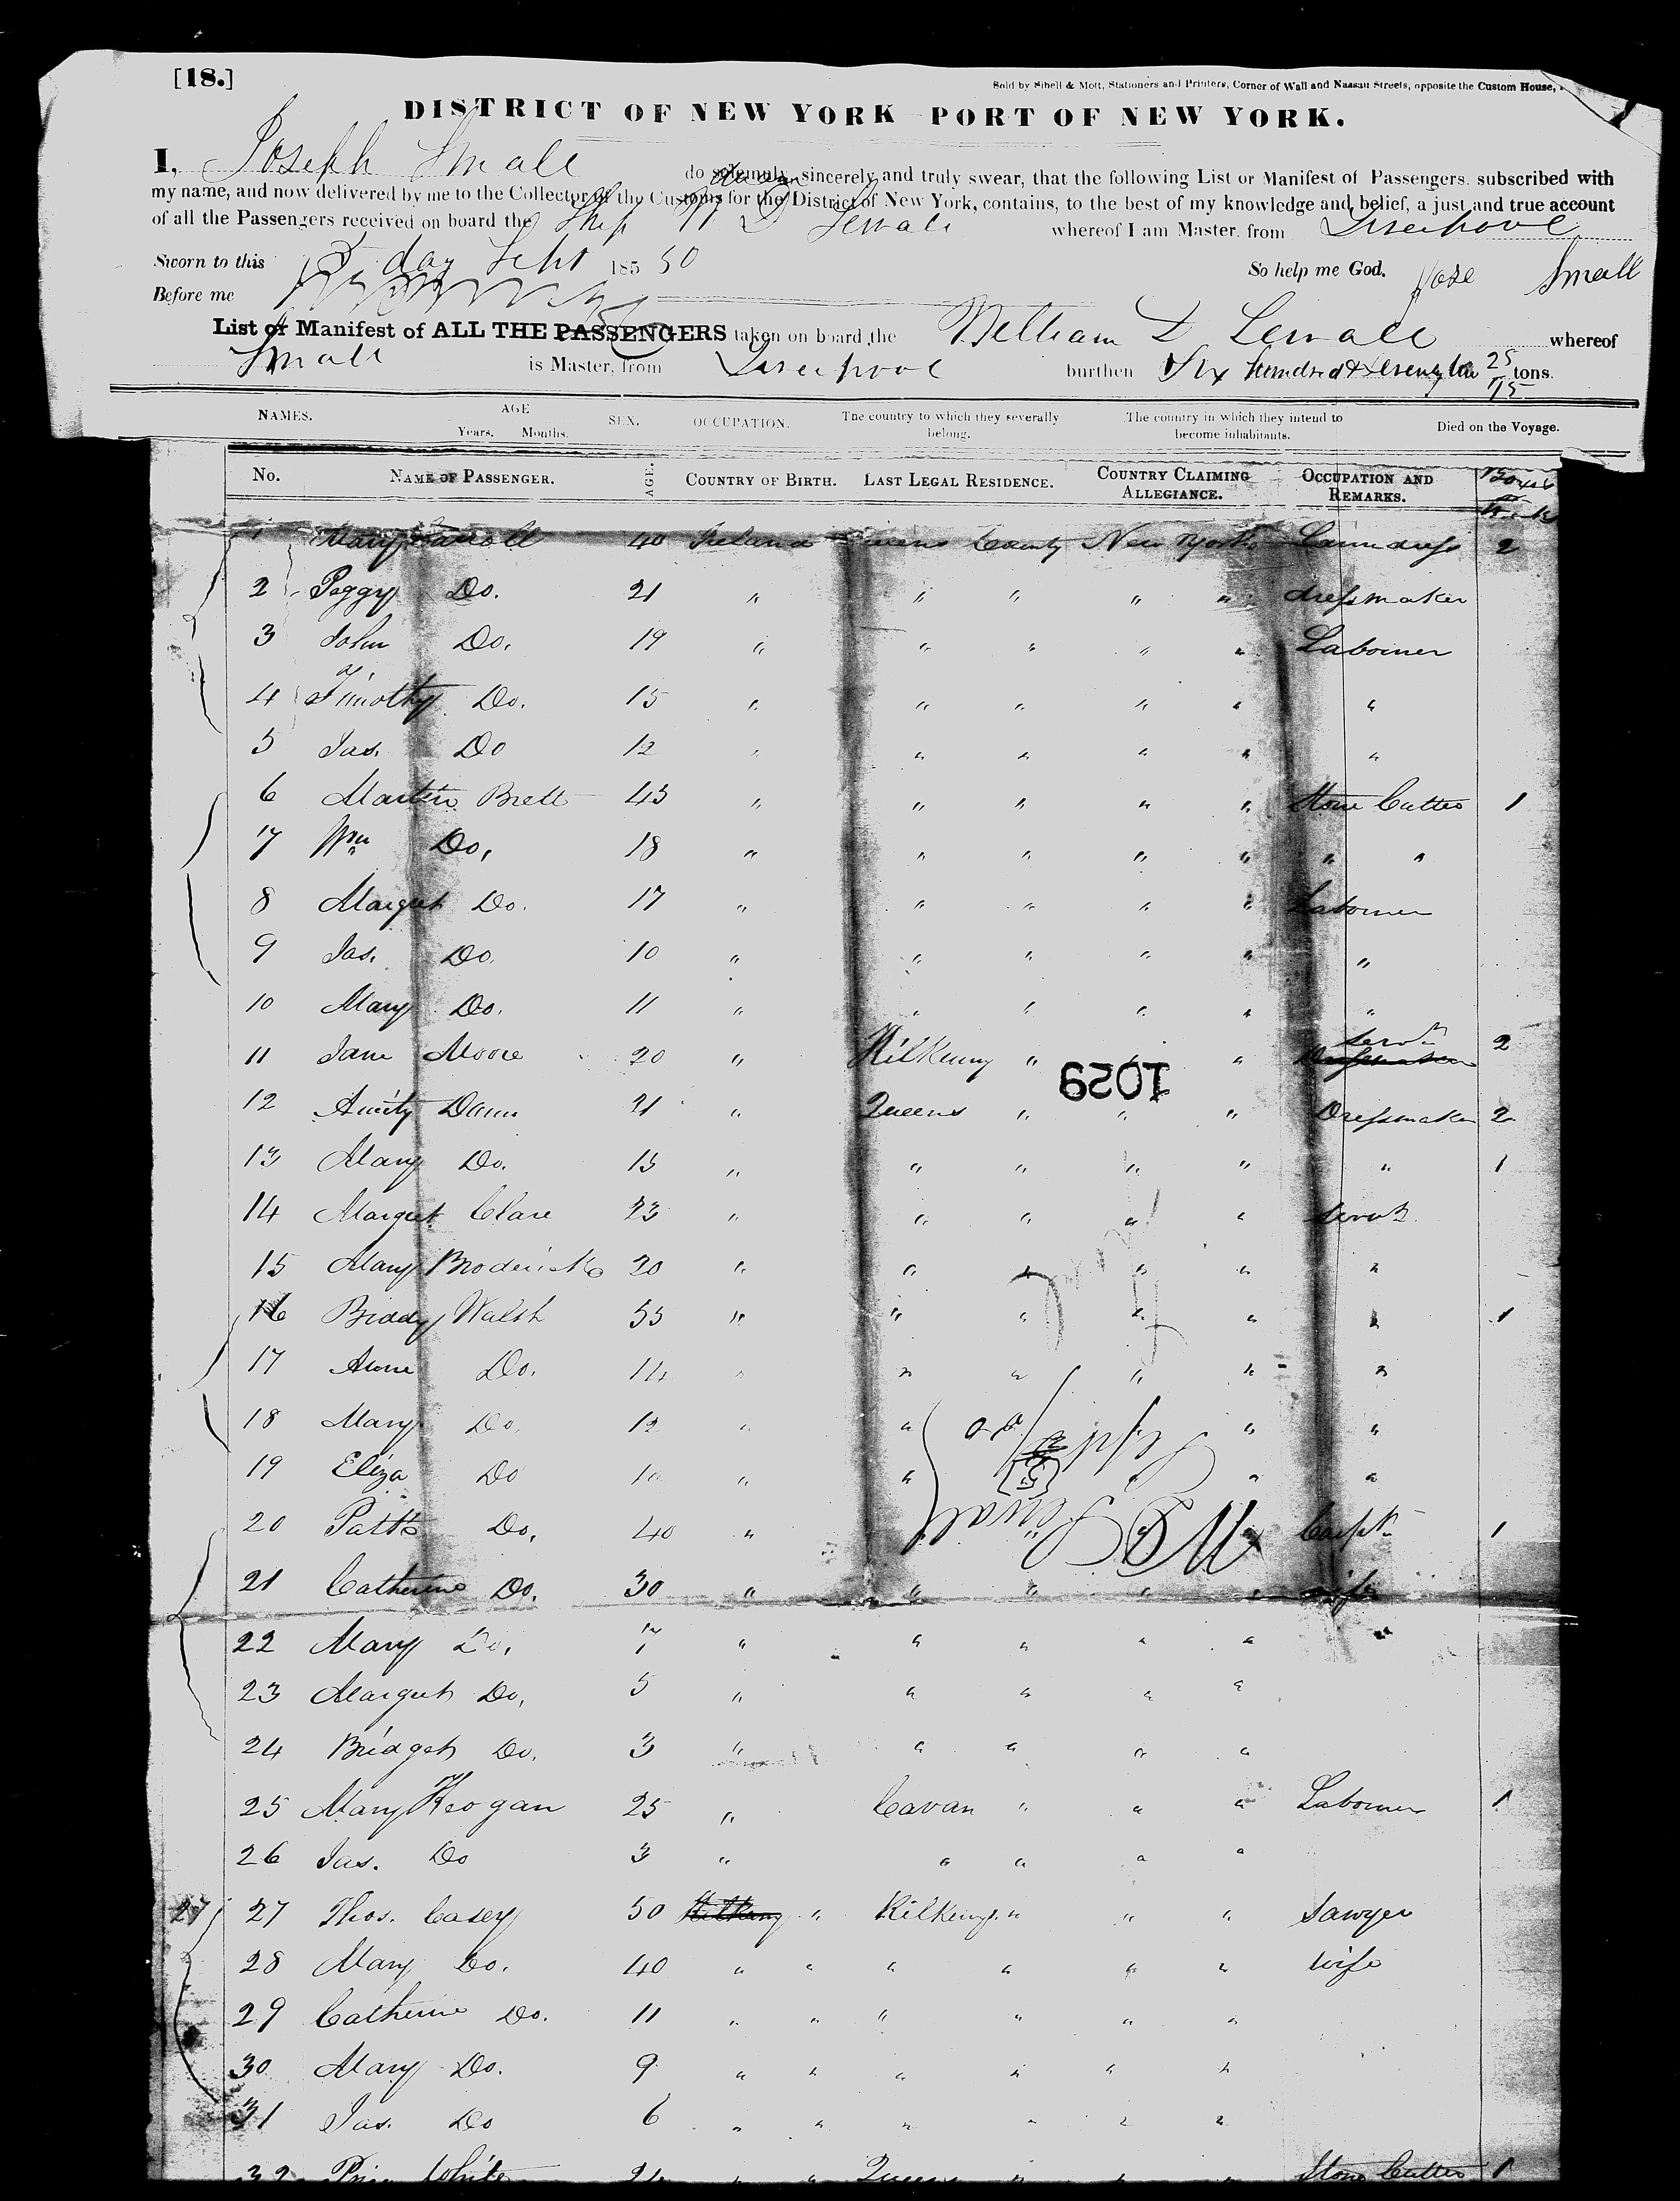 [18.]
Sold by Sibell & Mott, Stationers and Printers, Corner of Wall and Nassau Streets, opposite the Custom House,
DISTRICT OF NEW YORK PORT OF NEW YORK.
I, Joseph Small do solemnly, sincerely and truly swear, that the following List or Manifest of Passengers, subscribed with
my name, and now delivered by me to the Collector of the Customs for the District of New York, contains, to the best of my knowledge and belief, a just and true account
of all the Passengers received on board the Ship W D Sewall whereof I am Master, from Liverpool
Sworn to this 5 day Sept 185 50 So help me God. Jose Small
Before me
List or Manifest of ALL THE PASSENGERS taken on board the William D Sewall whereof
Small is Master, from Liverpool burthen Six hundred & Seventy 25 tons.
NAMES. AGE Years. Months. SEX. OCCUPATION. The country to which they severally belong. The country in which they intend to become inhabitants. Died on the Voyage.
No. NAME OF PASSENGER. AGE. COUNTRY OF BIRTH. LAST LEGAL RESIDENCE. COUNTRY CLAIMING ALLEGIANCE. OCCUPATION AND REMARKS.
1 Mary Carroll 40 Ireland Queens County New York Laundress 2
2 Peggy Do. 21 " " " " " dressmaker
3 John Do. 19 " " " " " Labourer
4 Timothy Do. 15 " " " " " "
5 Jas. Do 12 " " " " " "
6 Martin Brett 45 " " " " " Stone Cutter 1
7 Wm Do, 18 " " " " " " "
8 Margret Do. 17 " " " " " Labourer
9 Jas. Do. 10 " " " " " "
10 Mary Do. 11 " " " " " "
11 Jane Moore 20 " Kilkenny " " " Servt 2
1029
12 Dunn 21 " Queens " " " Dressmaker 2
13 Mary Do. 15 " " " " " " 1
14 Margret Clare 23 " " " " " Servt.
15 Mary Broderick 20 " " " " " "
16 Biddy Walsh 55 " " " " " " 1
17 Anne Do. 14 " " " " " "
18 Mary Do. 12 " " " " "
19 Eliza Do 10 " " " "
20 Patk Do, 40 " Carpt 1
W D Sewall
Sept
21 Catherine Do. 30 " " " " " wife
22 Mary Do, 7 " " " " "
23 Margret Do, 5 " " " " "
24 Bridget Do. 3 " " " " "
25 Mary Keogan 25 " Cavan " " " Labourer 1
26 Jas. Do 3 " " " " "
27 27 Thos. Casey 50 Kilkenny " Kilkenny " " " Sawyer
28 Mary Do. 40 " " " " " " wife
29 Catherine Do. 11 " " " " " "
30 Mary Do. 9 " " " " " "
31 Jas. Do 6 " " " " " "
32 White Queens " " " Stone Cutter 1